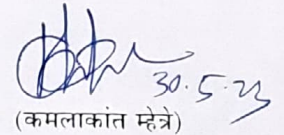 30.5.23
(कमलाकांत म्हेत्रे)